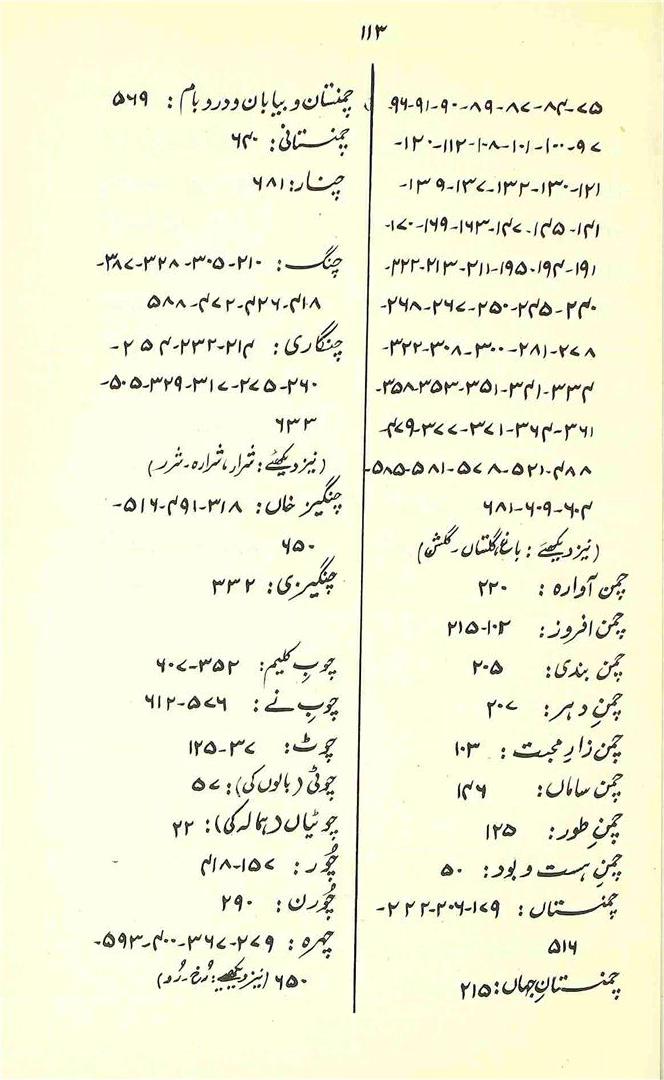 ۱۱۳
۷۵-۸۴-۸۷-۸۹-۹۰-۹۱-۹۶-
۹۷-۱۰۰-۱۰۱-۱۰۸-۱۱۲-۱۲۰-
۱۲۱-۱۳۰-۱۳۲-۱۳۷-۱۳۹-
۱۴۱-۱۴۵-۱۴۷-۱۶۳-۱۶۹-۱۷۰-
۱۹۱-۱۹۴-۱۹۵-۲۱۱-۲۱۳-۲۲۲-
۲۴۰-۲۴۵-۲۵۰-۲۶۷-۲۶۸-
۲۷۸-۲۸۱-۳۰۰-۳۰۸-۳۲۲-
۳۳۴-۳۴۱-۳۵۱-۳۵۳-۳۵۸-
۳۶۱-۳۶۴-۳۷۱-۳۷۷-۴۷۹-
۴۸۸-۵۲۱-۵۷۸-۵۸۱-۵۸۵-
۶۰۴-۶۰۹-۶۸۱
(نیز دیکھئے: باغ، گلستاں۔ گلشن)
چمن آوارہ: ۲۲۰
چمن افروز: ۱۰۲-۲۱۵
چمن بندی: ۲۰۵
چمنِ دہر: ۲۰۷
چمن زارِ محبت: ۱۰۳
چمن ساماں: ۱۴۶
چمنِ طور: ۱۲۵
چمنِ ہست و بود: ۵۰
چمنستاں: ۱۷۹-۲۰۶-۲۲۲-
۵۱۶
چمنستانِ جہاں: ۲۱۵
چمنستان و بیابان و در و بام: ۵۶۹
چمنستانی: ۶۴۰
چنار: ۶۸۱
چنگ: ۲۱۰-۳۰۵-۳۲۸-۳۸۷-
۴۱۸-۴۲۶-۴۷۲-۵۸۸
چنگاری: ۲۱۴-۲۳۲-۲۵۴-
۲۶۰-۲۷۵-۳۱۷-۳۲۹-۵۰۵-
۶۳۳
(نیز دیکھئے: شرار، شرارہ۔ شرر)
چنگیز خاں: ۳۱۸-۴۹۱-۵۱۶-
۶۵۰
چنگیزی: ۳۳۲
چوبِ کلیم: ۳۵۲-۶۰۷
چوبِ نے: ۵۷۶-۶۱۲
چوٹ: ۳۷-۱۲۵
چوٹی (بالوں کی): ۵۷
چوٹیاں (ہمالہ کی): ۲۲
چُور: ۱۵۷-۴۱۸
چُورن: ۲۹۰
چہرہ: ۲۷۹-۳۶۷-۴۰۰-۵۹۳-
۶۵۰ (نیز دیکھیے: رُخ۔ رُو)